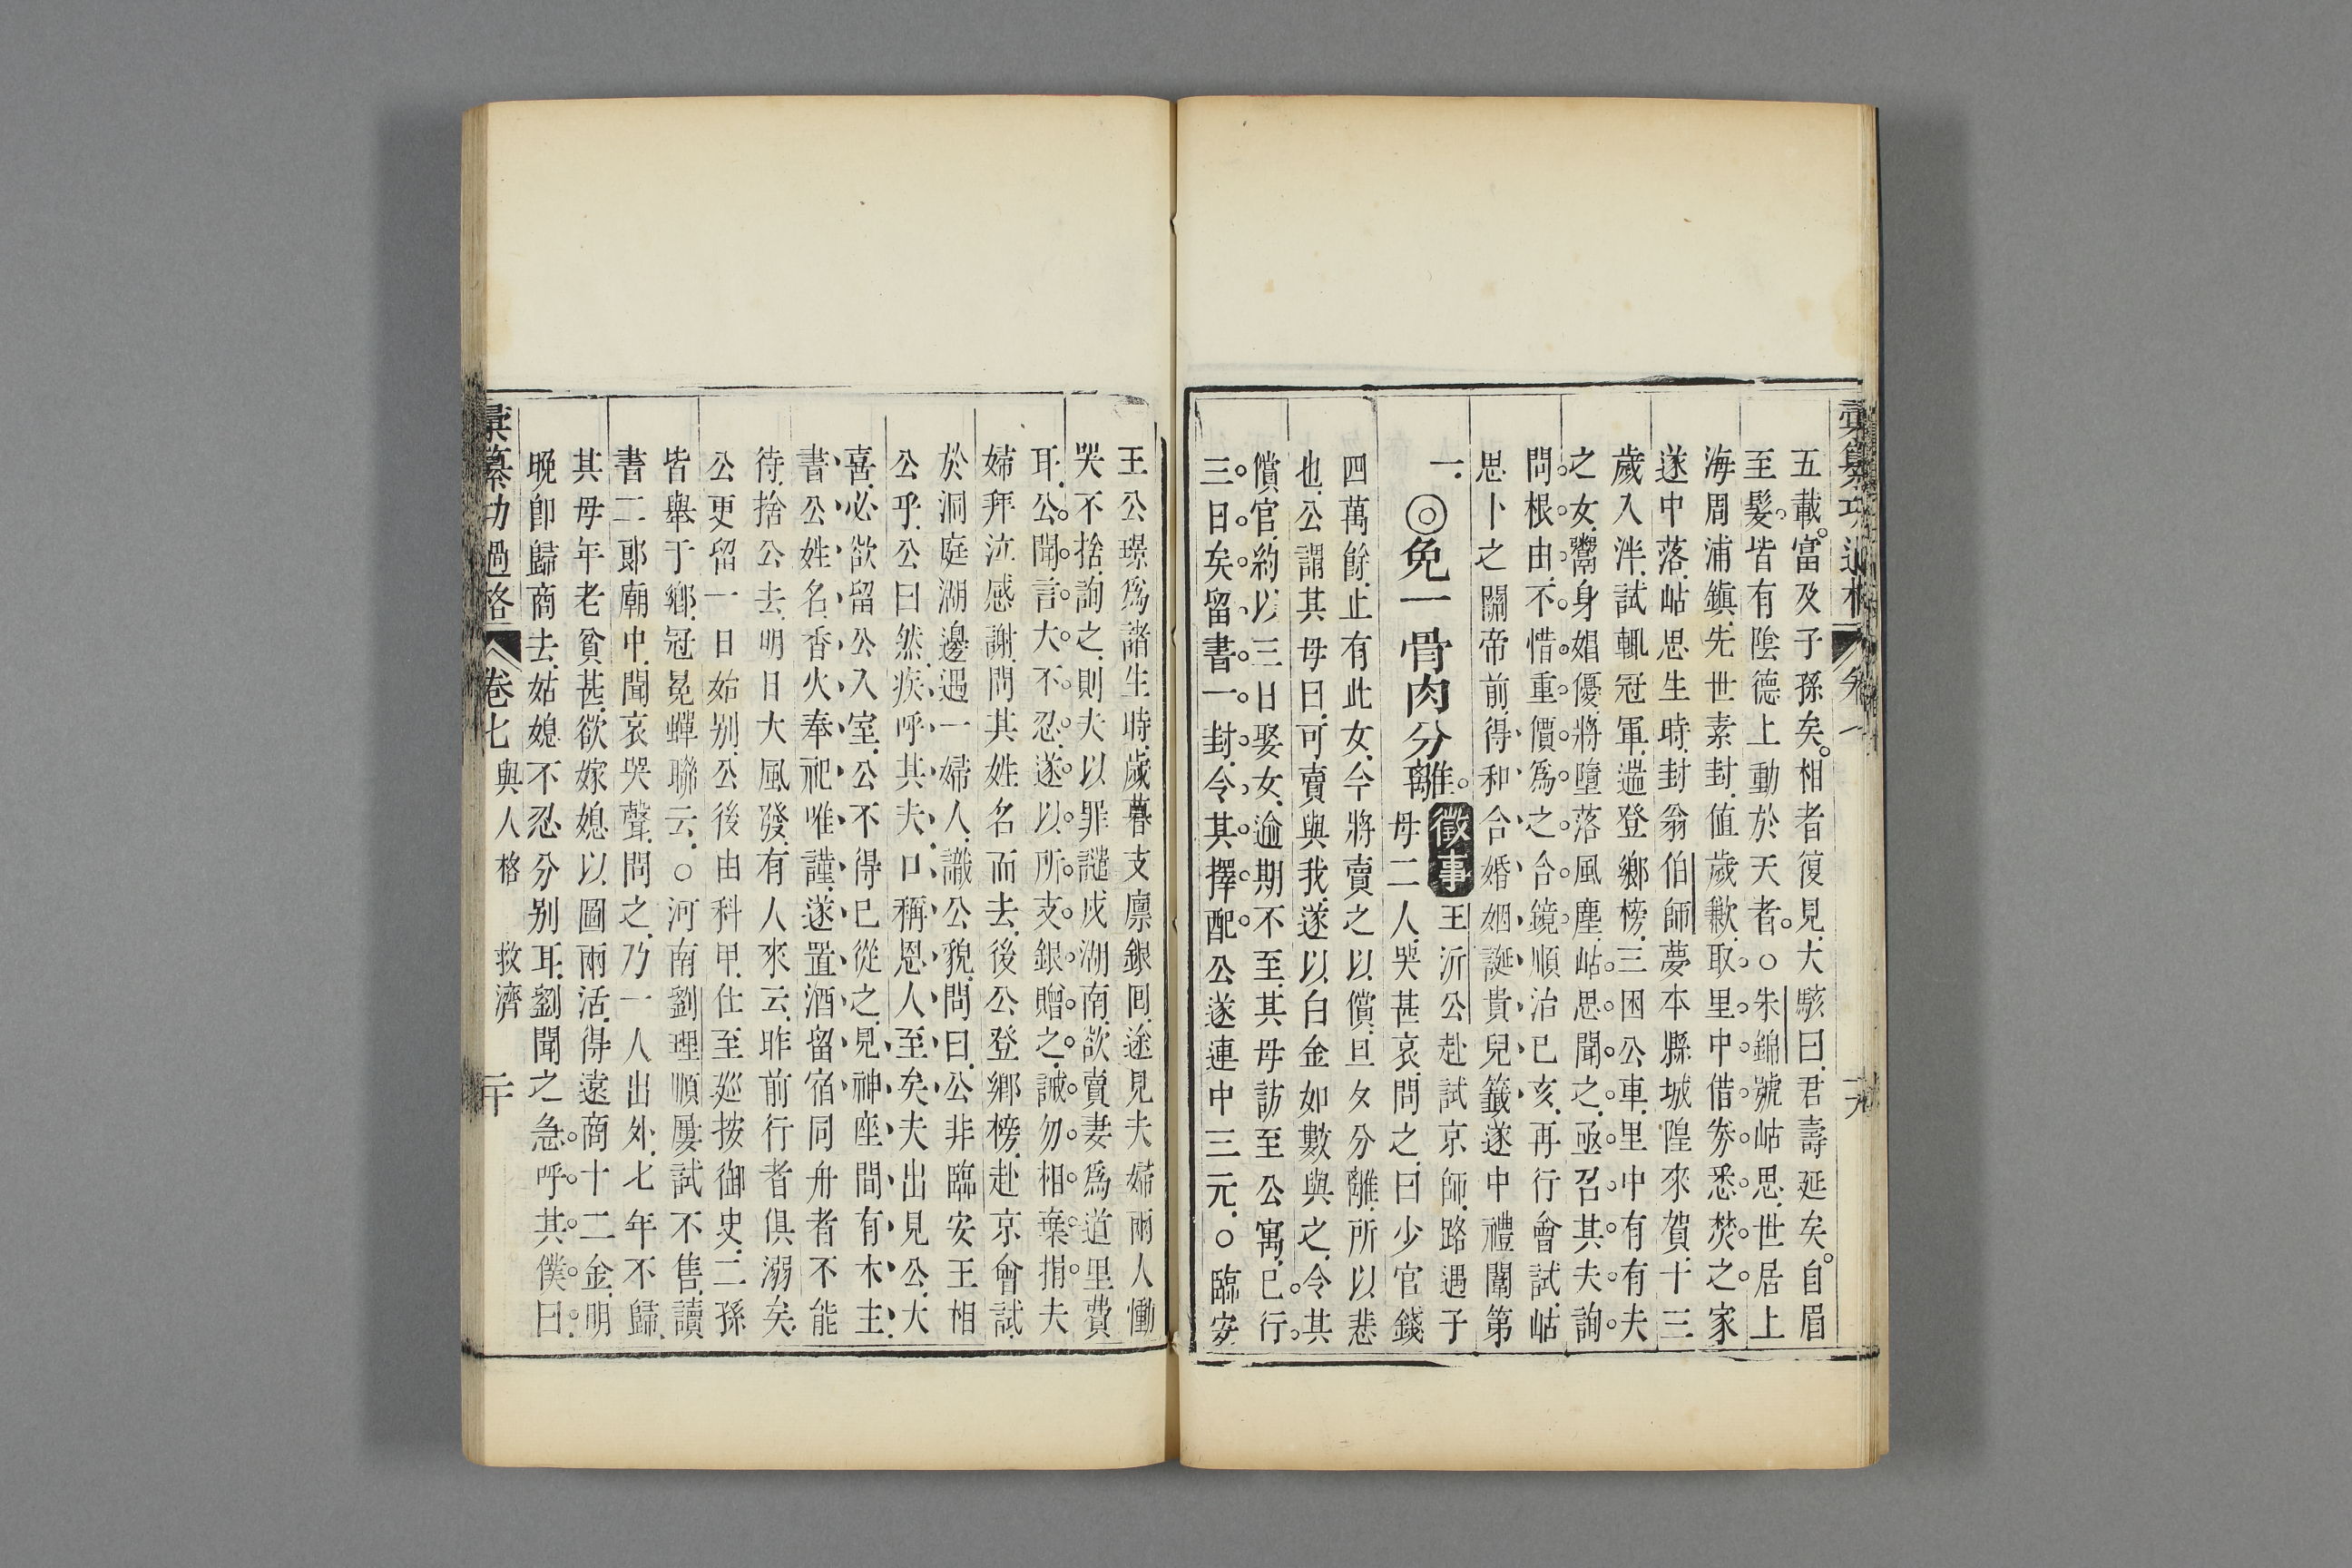 彙纂功過格 卷
五載。富及子孫矣。相者復見。大駭曰。君壽延矣。自眉
至髮。皆有陰德上動於天者。○朱錦號岵思。世居上
海周浦鎮。先世素封。值歲歉。取里中借券悉焚之。家
遂中落。岵思生時。封翁伯師夢本縣城隍來賀。十三
歲入泮。試輒冠軍。遄登鄉榜。三困公車。里中有有夫
之女。鬻身娼優。將墮落風塵。岵思聞之。亟召其夫詢
問根由。不惜重價爲之合鏡。順治己亥。再行會試。岵
思卜之關帝前。得和合婚姻誕貴兒籤。遂中禮闈第
一。
◎免一骨肉分離。 徵事 王沂公赴試京師。路遇子
母二人。哭甚哀。問之。曰少官錢
四萬餘。止有此女。今將賣之以償。旦夕分離。所以悲
也。公謂其母曰。可賣與我。遂以白金如數與之。令其
償官。約以三日娶女。逾期不至。其母訪至公寓。已行
三日矣。留書一封。令其擇配。公遂連中三元。○臨安
王公璟爲諸生時。歲暮支廩銀囘。途見夫婦兩人慟
哭不捨。詢之。則夫以罪譴戍湖南。欲賣妻爲道里費
耳。公聞言大不忍。遂以所支銀贈之。誡勿相棄捐。夫
婦拜泣感謝。問其姓名而去。後公登鄉榜。赴京會試。
於洞庭湖邊遇一婦人。識公貌。問曰。公非臨安王相
公乎。公曰然。疾呼其夫。口稱恩人至矣。夫出見公。大
喜。必欲留公入室。公不得已從之。見神座間有木主。
書公姓名。香火奉祀唯謹。遂置酒留宿。同舟者不能
待。捨公去。明日大風發。有人來云。昨前行者俱溺矣。
公更留一日始别。公後由科甲。仕至廵按御史。二孫
皆舉于鄉。冠冕蟬聯云。○河南劉理順屢試不售。讀
書二郞廟中。聞哀哭聲。問之。乃一人出外。七年不歸。
其母年老貧甚。欲嫁媳以圖兩活。得遠商十二金。明
晚卽歸商去。姑媳不忍分别耳。劉聞之。急呼其僕曰。
彙纂功過格 卷七 與人格 救濟 二十